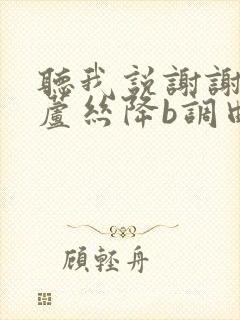 聽我說謝謝
蘆絲降b調曲
顧輕舟